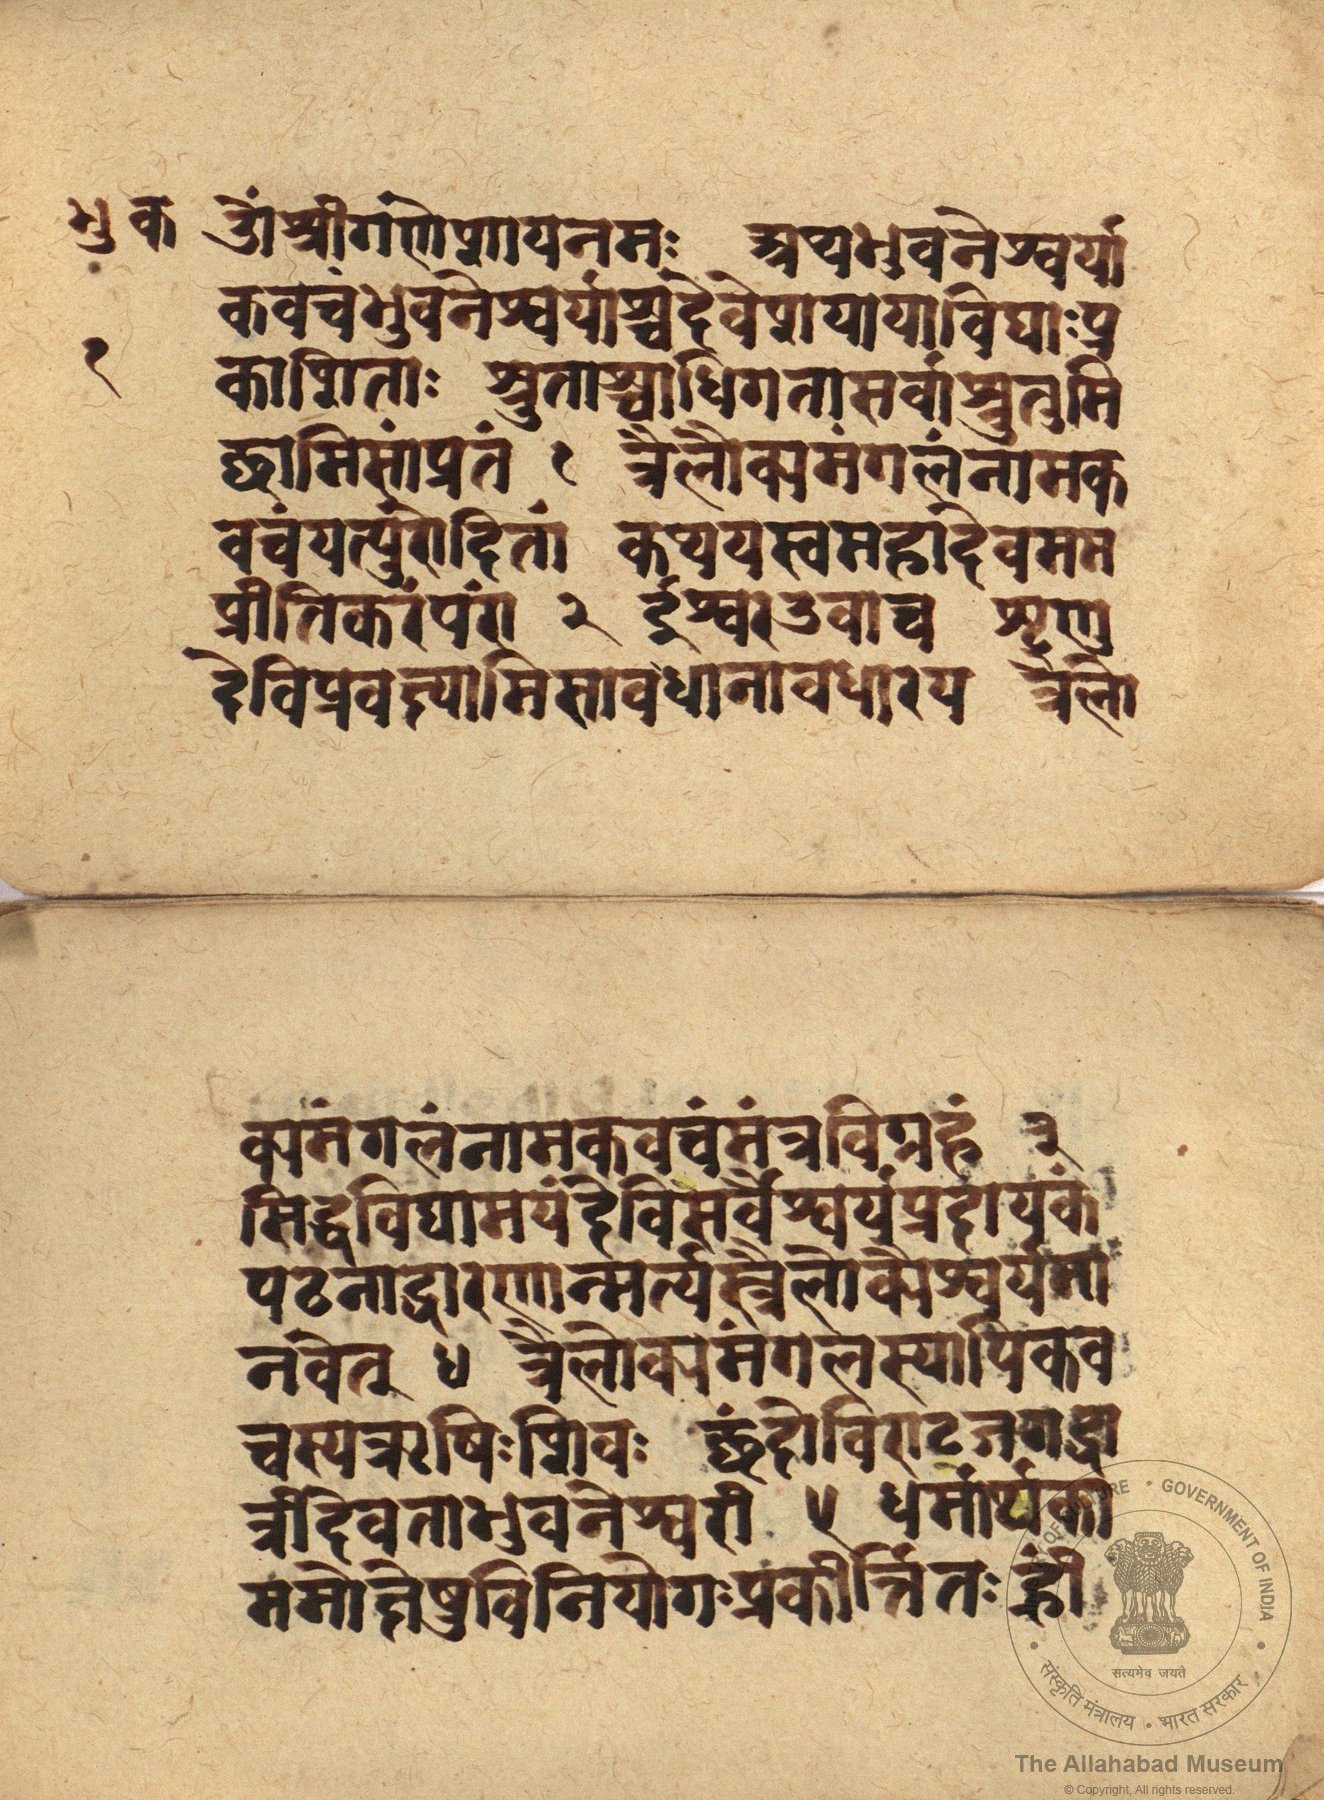 भु क ॐ श्रीगणेशायनमः अथभुवनेश्वर्या
कवचंभुवनेश्वर्याश्चदेवेशयायाविद्याःप्र
१
काशिताः श्रुताश्चाधिगतासर्वाश्रुतुमि
छामिसांप्रतं १ त्रैलौक्यमंगलंनामक
वचंयत्पुरोदितां कथयस्वमहादेवमम
प्रीतिकरंपरा २ ईश्वरउवाच शृणु
देविप्रवक्ष्यामिसावधानावधारय त्रैलो
क्यमंगलंनामकवचंमंत्रविग्रहं ३
सिद्धविद्यामयंदेविसर्वैश्वर्यप्रदायकं
पठनाद्धारणान्मर्त्यस्त्रैलोक्यैश्वर्यमा
नवेत् ४ त्रैलोक्यमंगलस्यापिकव
चस्यऋषिःशिवः छंदोविराटजगद्धा
त्रीदेवताभुवनेश्वरी ५ धर्मार्थका
ममोक्षेषुविनियोगःप्रकीर्त्तितः ह्रीं
GOVERNMENT OF INDIA
सत्यमेव जयते
संस्कृति मंत्रालय • भारत सरकार
The Allahabad Museum
© Copyright, All rights reserved.